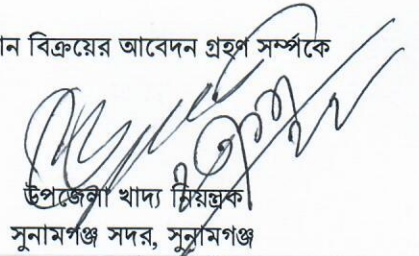 ান বিক্রয়ের আবেদন গ্রহণ সর্ম্পকে
উপজেলা খাদ্য নিয়ন্ত্রক
সুনামগঞ্জ সদর, সুনামগঞ্জ